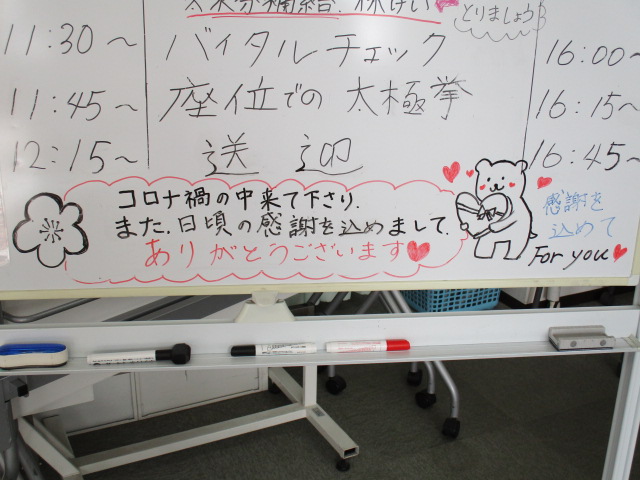 とりましょう
11:30～ バイタルチェック 16:00～
11:45～ 座位での 太極拳 16:15～
12:15～ 送迎 16:45～
コロナ禍の中来て下さり、
また、日頃の感謝を込めまして、
ありがとうございます
感謝を
込めて
For you